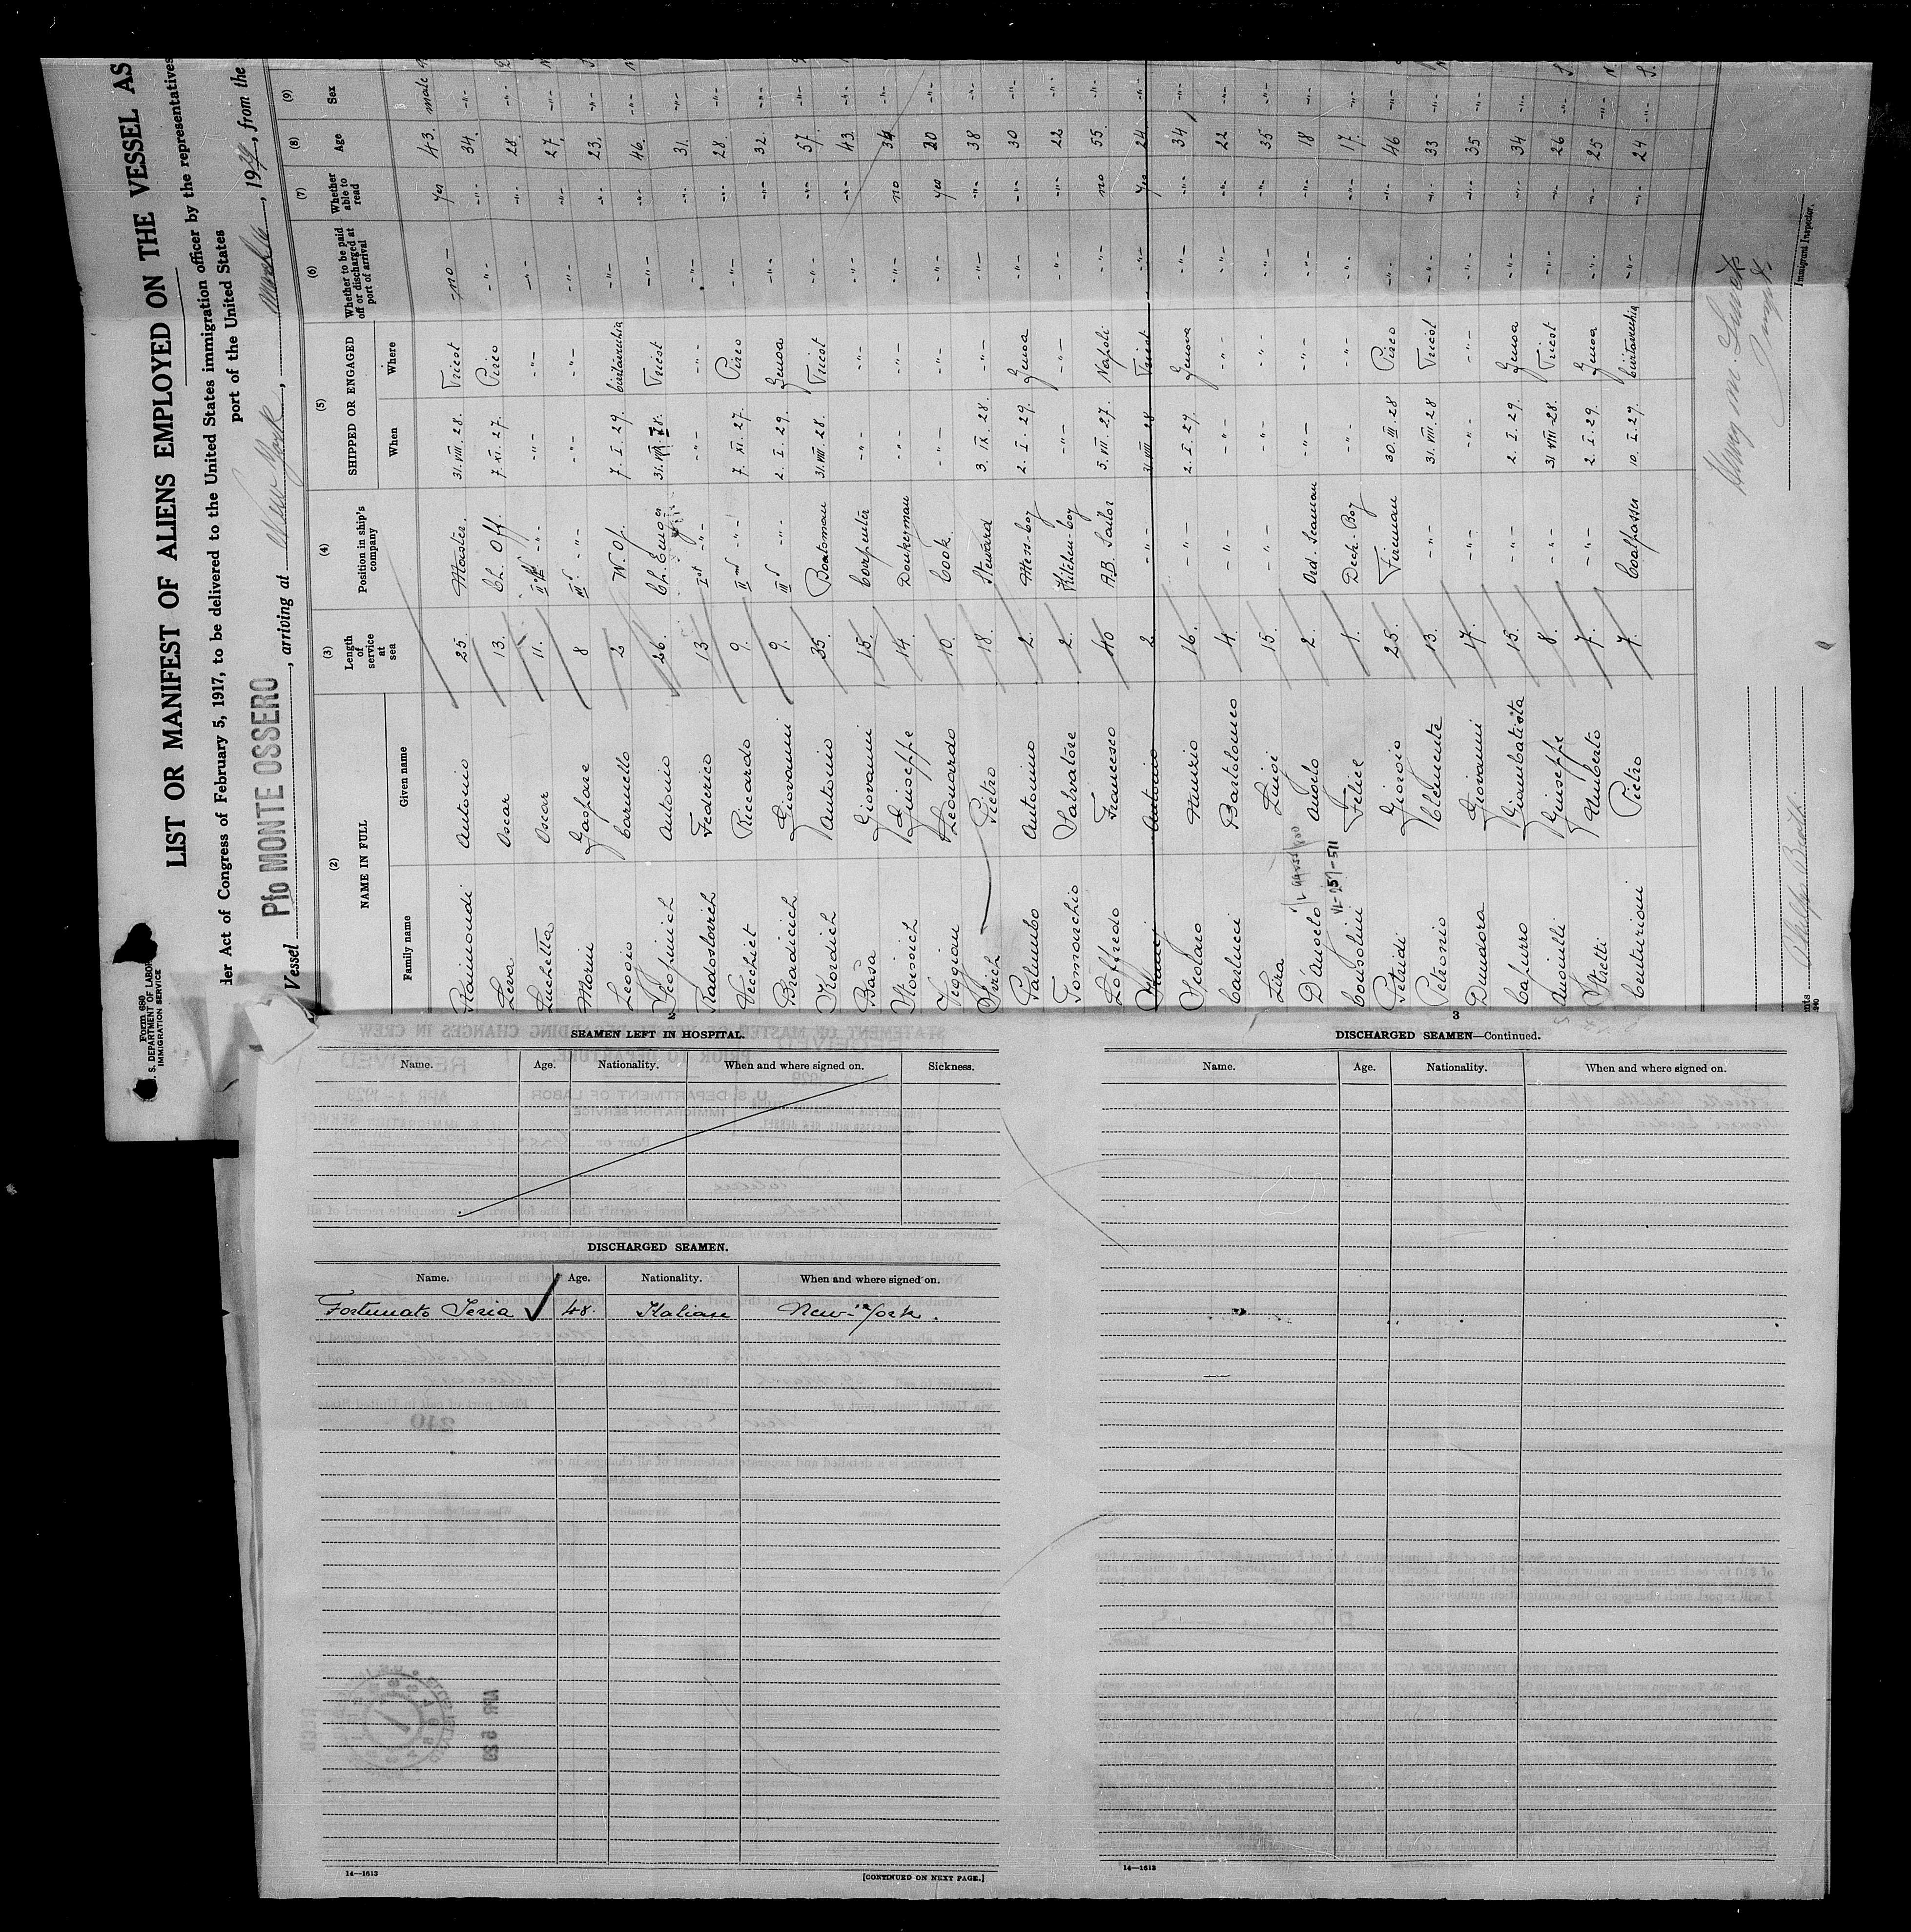 Form 680
U. S. DEPARTMENT OF LABOR
IMMIGRATION SERVICE
LIST OR MANIFEST OF ALIENS EMPLOYED ON THE VESSEL AS
der Act of Congress of February 5, 1917, to be delivered to the United States immigration officer by the representatives
port of the United States
Vessel Pfo MONTE OSSERO, arriving at New York, March 6, 1929, from the
(2) (3) (4) (5) (6) (7) (8) (9)
NAME IN FULL Length of service at sea Position in ship's company SHIPPED OR ENGAGED Whether to be paid off or discharged at port of arrival Whether able to read Age Sex
Family name Given name When Where
Raimondi Antonio 25 Master. 31.VIII.28. Triest -no- yes 43. male
Leva Oscar 13. Ch. Off. 7.XI.27. Pireo -"- -"- 34. -"-
Luchetta Oscar 11. II -"- -"- -"- -"- -"- 28. -"-
Morin Gaspare 8 III -"- -"- -"- -"- -"- 27. -"-
Leggio Carmello 2 W. Op. 7.I.29. Civitavecchia -"- -"- 23. -"-
Scopinich Antonio 26. Ch. Eng. 31.VIII.28. Triest -"- -"- 46. -"-
Radoslovich Federico 13 Ist -"- -"- -"- -"- -"- 31. -"-
Vecchiet Riccardo 9. II -"- 7.XI.27. Pireo -"- -"- 28. -"-
Bradicich Giovanni 9. III -"- 2.I.29. Genoa -"- -"- 32. -"-
Kordich Antonio 35. Boatsman 31.VIII.28. Triest -"- -"- 57. -"-
Basa Giovanni 15. Carpenter -"- -"- -"- -"- 43. -"-
Stoisich Giuseppe 14. Donkeyman -"- -"- -"- no 34 -"-
Veggian Leonardo 10. Cook. -"- -"- -"- yes 20 -"-
Sirich Pietro 18. Steward 3.IX.28. -"- -"- -"- 38 -"-
Palumbo Antonino 2. Mess-boy 2.I.29. Genoa -"- -"- 30 -"-
Tomarchio Salvatore 2. Kitchen-boy -"- -"- -"- -"- 22 -"-
Loffredo Francesco 40 A.B. Sailor 5.VII.27. Napoli -"- no 55. -"-
Antonino 2 -"- 31.VIII.28 Triest -"- yes 24 -"-
Scolaro Maurizio 16. -"- 2.I.29. Genova -"- -"- 34 -"-
Carlucci Bartolomeo 4. -"- -"- -"- -"- -"- 22 -"-
Lira Luigi 15. -"- -"- -"- -"- -"- 35 -"-
D'Angelo Angelo 2. Ord. Seaman -"- -"- -"- -"- 18 -"-
Consolini Felice 1. Deck-Boy -"- -"- -"- -"- 17. -"-
VL-257-511
Petridi Giorgio 25. Fireman 30.III.28 Pireo -"- -"- 46 -"-
Petronio Clemente 13. -"- 31.VIII.28 Triest -"- -"- 33 -"-
Dundora Giovanni 17. -"- -"- -"- -"- -"- 35 -"-
Capurro Giambatista 15. -"- 2.I.29. Genoa -"- -"- 34 -"-
Giuseppe 8. -"- 31.VIII.28. Triest -"- -"- 26 -"-
Stretti Umberto 7. -"- 2.I.29. Genoa -"- -"- 25 -"-
Centurioni Pietro 7. Coalpasser 10.I.29. Civitavecchia -"- -"- 24 -"-
Immigrant Inspector.
2
SEAMEN LEFT IN HOSPITAL.
Name. Age. Nationality. When and where signed on. Sickness.
DISCHARGED SEAMEN.
Name. Age. Nationality. When and where signed on.
Fortunato Seria 48. Italian New-York.
14—1613
[CONTINUED ON NEXT PAGE.]
3
DISCHARGED SEAMEN—Continued.
Name. Age. Nationality. When and where signed on.
14—1613